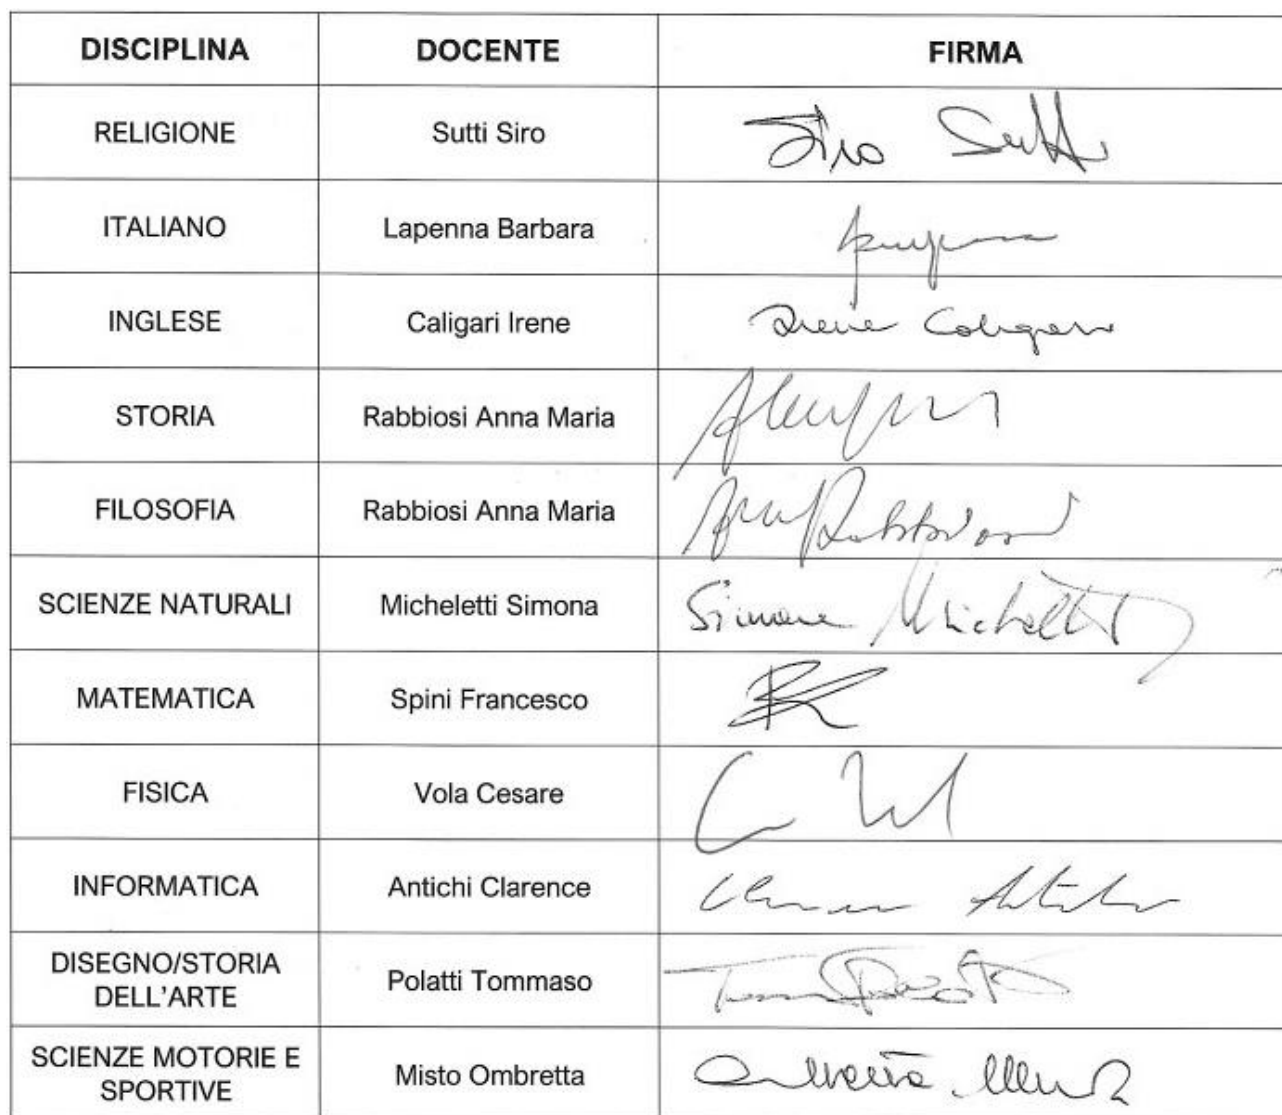 DISCIPLINA DOCENTE FIRMA
RELIGIONE Sutti Siro Siro Sutti
ITALIANO Lapenna Barbara
INGLESE Caligari Irene Irene Caligari
STORIA Rabbiosi Anna Maria
FILOSOFIA Rabbiosi Anna Maria
SCIENZE NATURALI Micheletti Simona Simona Micheletti
MATEMATICA Spini Francesco
FISICA Vola Cesare
INFORMATICA Antichi Clarence
DISEGNO/STORIA
DELL'ARTE Polatti Tommaso
SCIENZE MOTORIE E
SPORTIVE Misto Ombretta